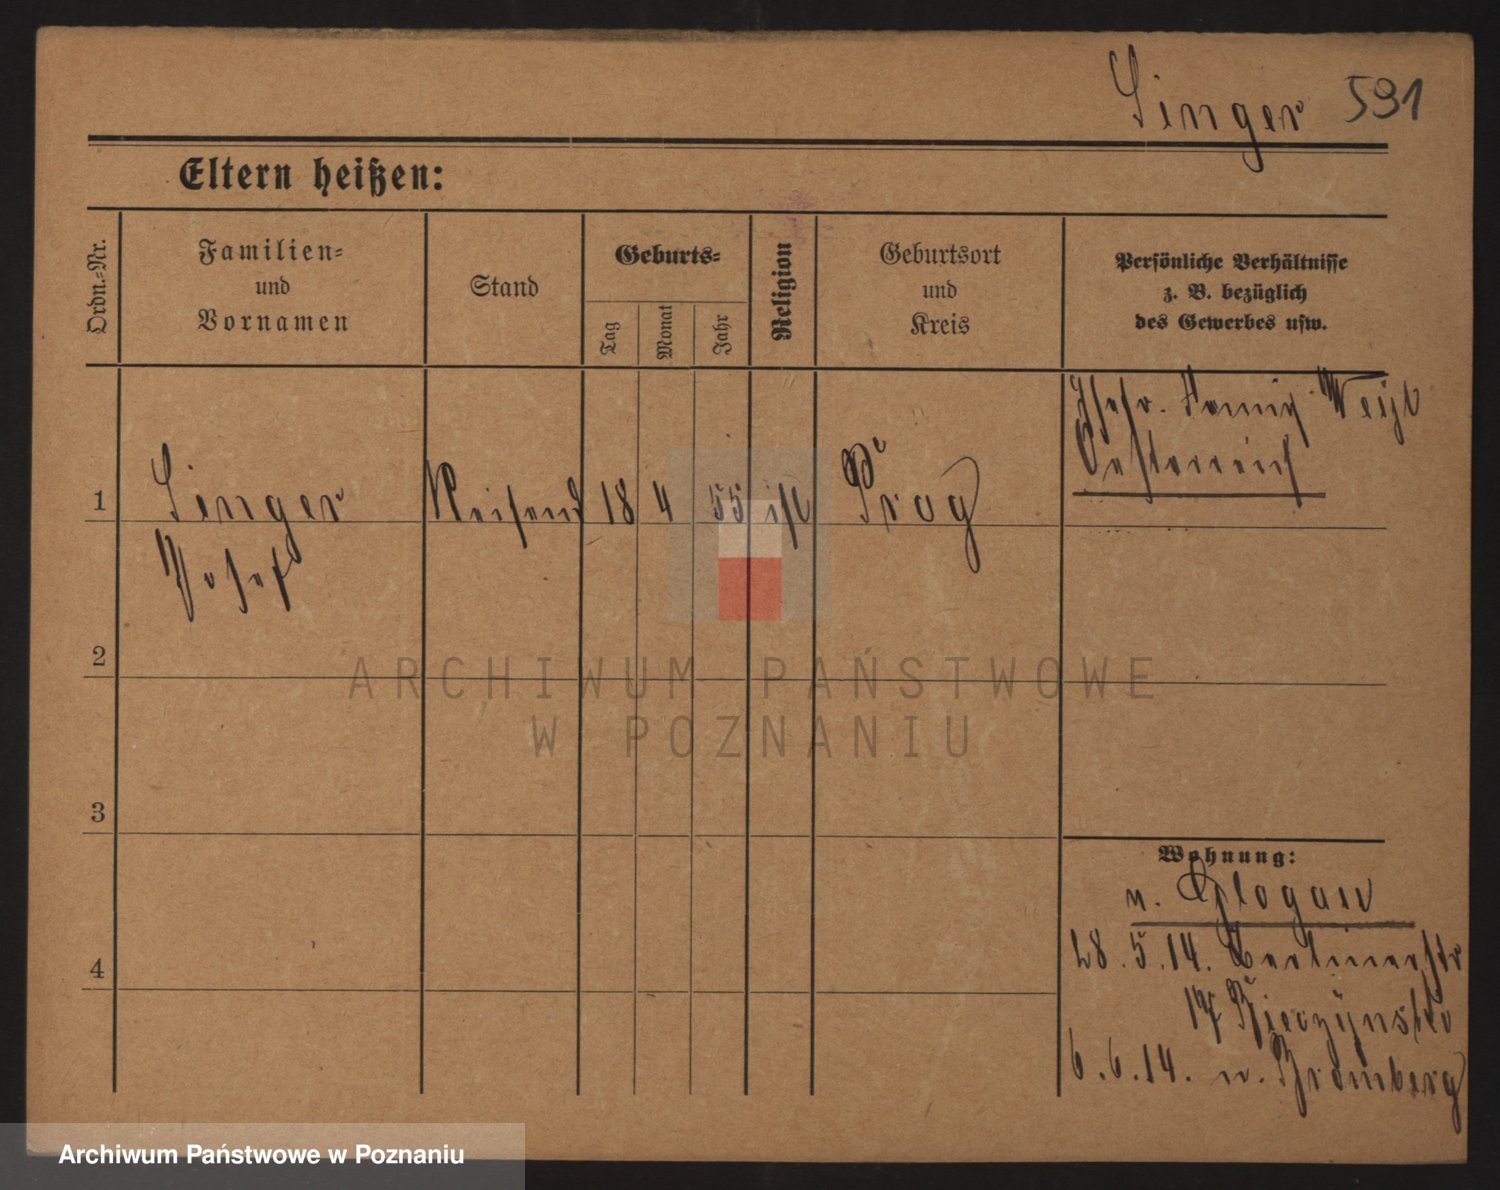 Singer 591
Eltern heißen:
Ordn.-Nr.
Familien-
und
Vornamen
Stand
Geburts-
Tag
Monat
Jahr
Religion
Geburtsort
und
Kreis
Persönliche Verhältnisse
z. B. bezüglich
des Gewerbes usw.
Oesterreich
1 Singer Reisend 18 4 55 isr Prag
Josef
2
3
4
Wohnung:
n. Glogau
28.5.14. Berlinerstr
17
6.6.14. n. Bromberg
ARCHIWUM PAŃSTWOWE
W POZNANIU
Archiwum Państwowe w Poznaniu